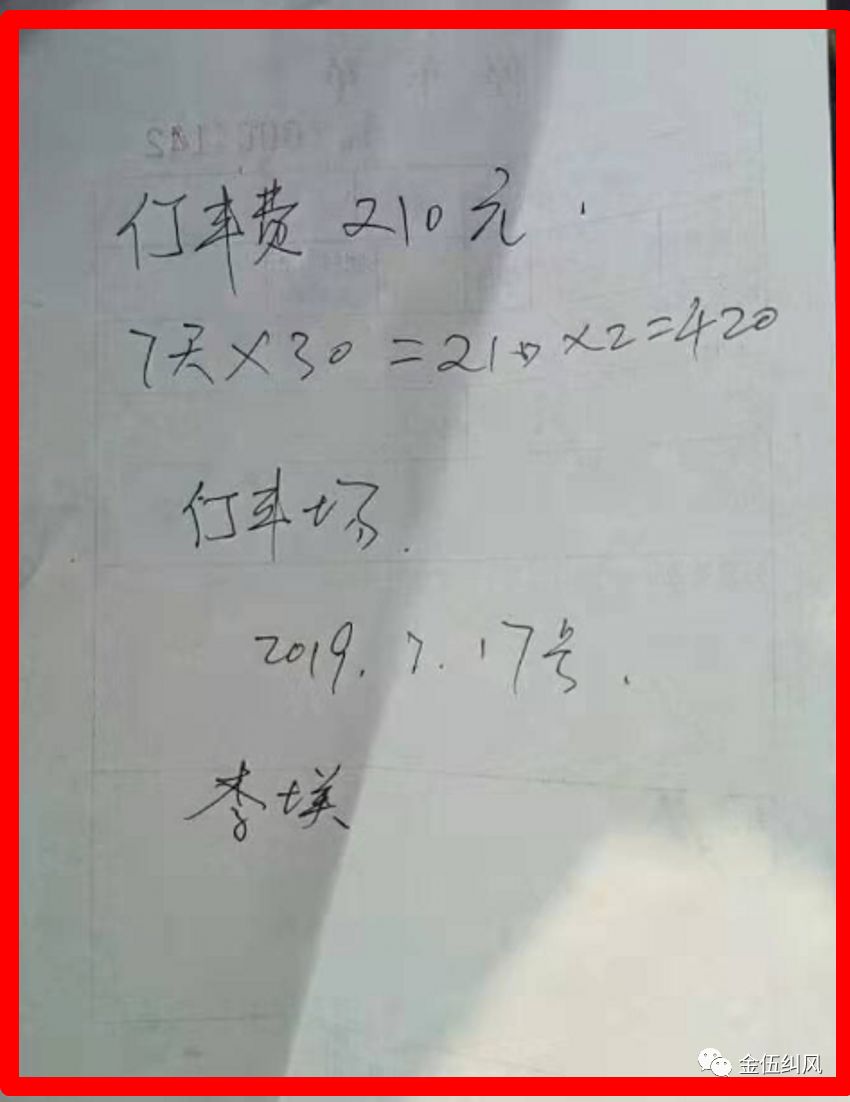 仃车费 210元.
7天×30=210×2=420
仃车场.
2019.7.17号.
李瑛
金伍纠风